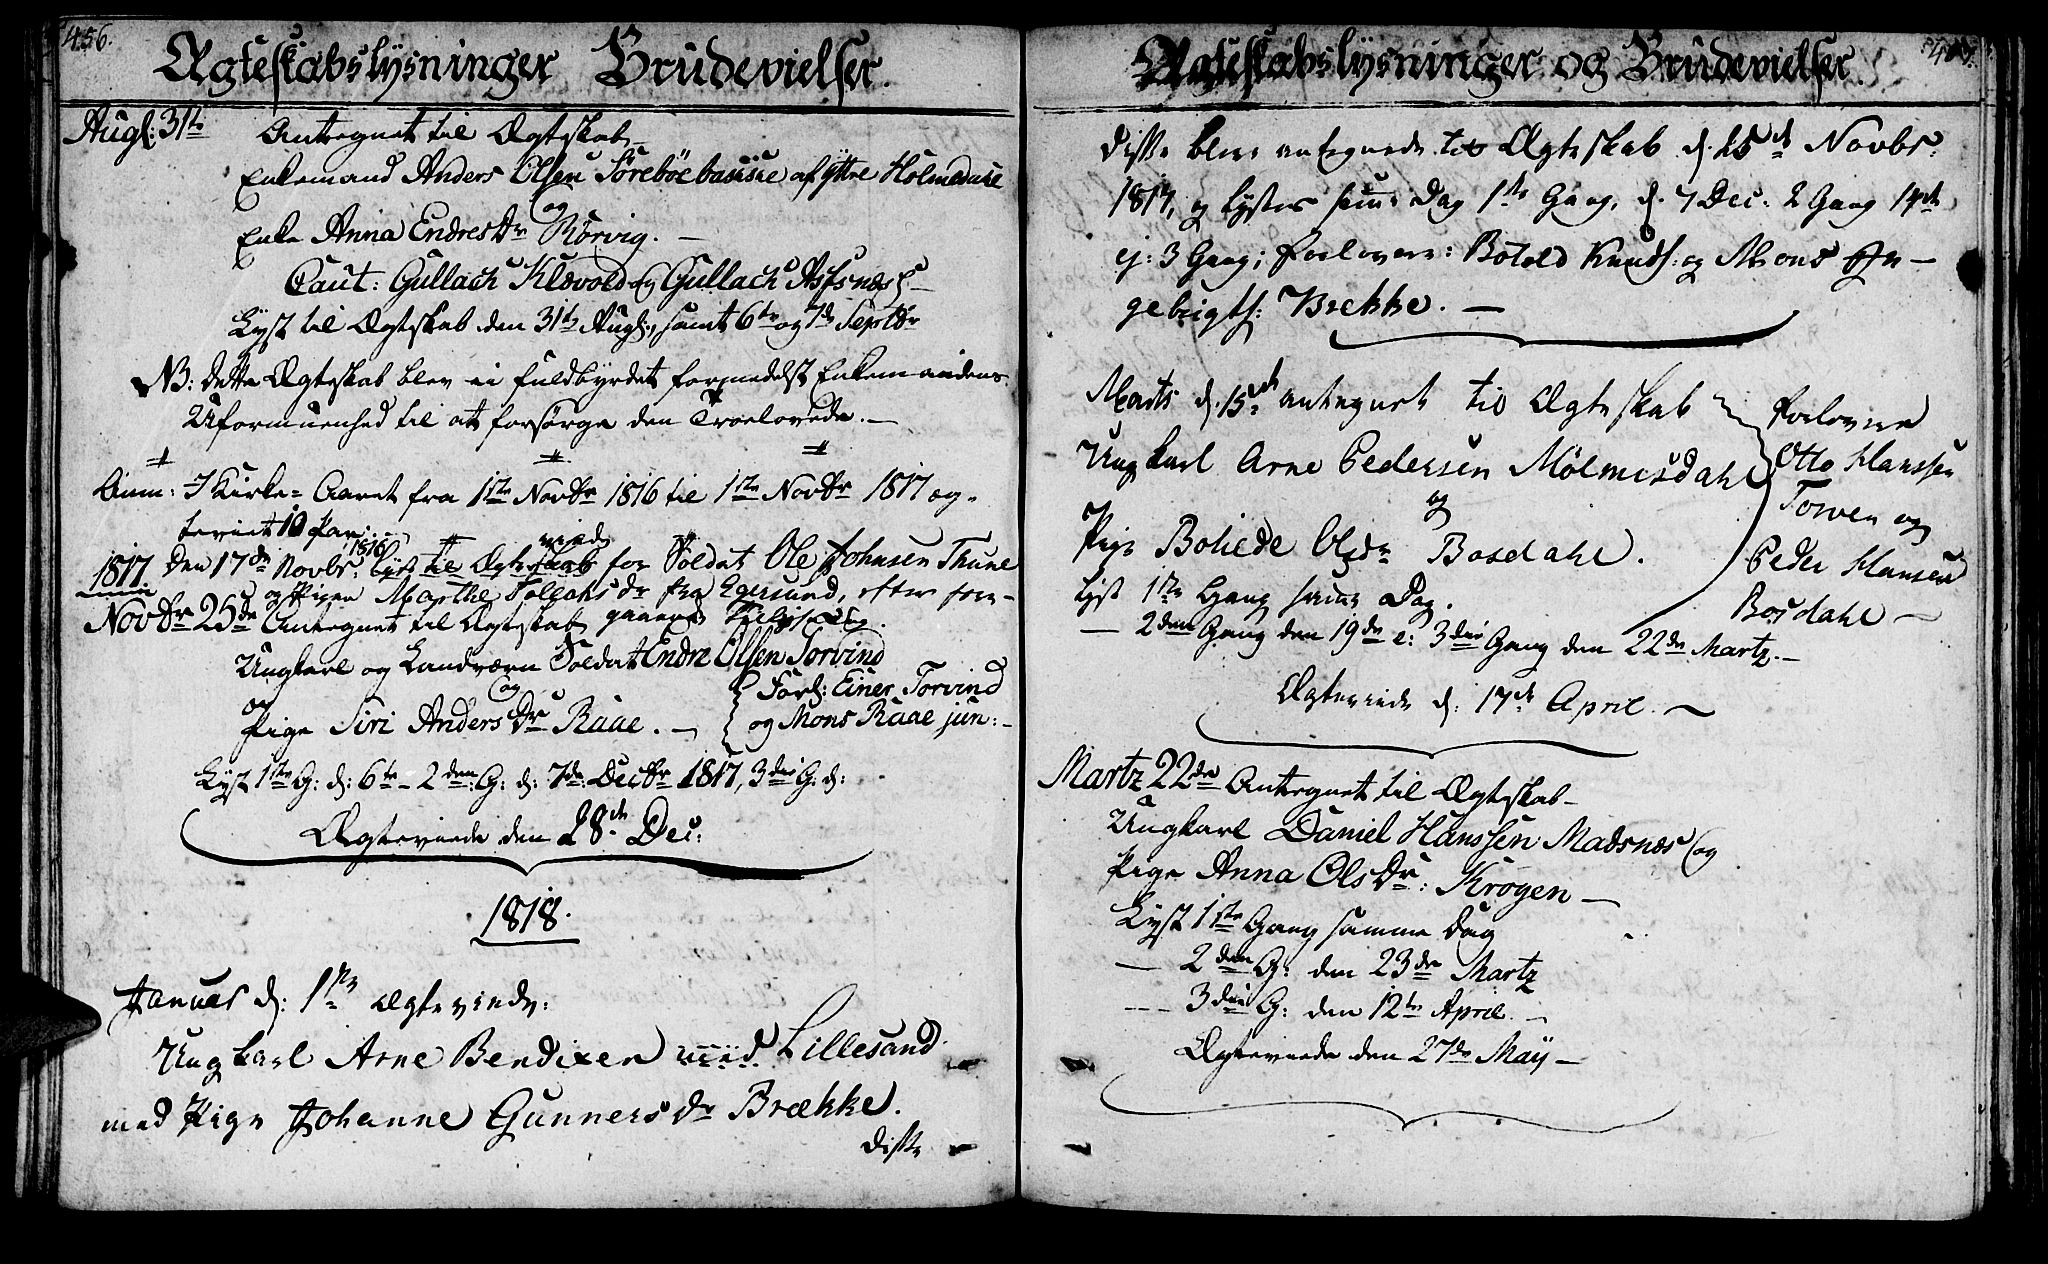 456.
Ægteskabslysninger Brudevielser.
Augl: 31te Antegnet til Ægteskab
Enkemand Anders Olsen Söreböe af yttre Holmedahl
og
Enke Anna Endres Dr Rörvig. —
Caut: Gullach Klævold og Gullach
Lyst til Ægteskab den 31te Augl:, samt 6te og 7de Septbr
NB: Dette Ægteskab blev ei fuldbyrdet formedelst Enkemandens
Uformuenhed til at forsörge den Troelovede. —
Anm: I Kirke-Aaret fra 1ste Novbr 1816 til 1ste Novbr 1817 ægteviet 10 Par.
1817 Den 17de Novbr: 1816 viede for Soldat Ole Johnsen Thune
og Pigen Marthe Tollachs dr fra Egersund, efter fore-
Novbr 25de Antegnet til Ægteskab gaaende
Ungkarl og Landværn Soldat Endre Olsen Torvind
og
Pige Siri Anders Dr Raae. —
Forl: Einer Torvind
og Mons Raae jun: —
Lyst 1ste G: d: 6te — 2den G: d: 7de Decbr 1817, 3die G: d:
Ægteviede den 28de Dec:
1818.
Januar d: 1ste Ægteviede:
Ungkarl Arne Bendixen Lillesand
med Pige Johanne Gunners dr Brække.
Disse
Ægteskabslysninger og Brudevielser.
Disse bleve antegnede til Ægteskab d. 25de Novbr:
1817, og lystes samme Dag 1ste Gang, d. 7 Dec: 2 Gang 14de
ej: 3 Gang; Forlovere: Botold Knuds: og Mons In-
gebrigts: Brekke. —
Marts d. 15de antegnet til Ægteskab
Ungkarl Arne Pedersen Mölmesdahl
og
Pige Boliede Olsdr Bosdahl.
Forlovere
Otto Hanssen
Torven og
Peder Hansen
Bosdahl —
Lyst 1ste Gang samme Dag.
— 2den Gang den 19de e: 3die Gang den 22de Martz. —
Ægteviede d: 17de April. —
Martz 22de Antegnet til Ægteskab —
Ungkarl Daniel Hanssen Madsnæs og
Pige Anna Ols Dr: Krogen —
Lyst 1ste Gang samme Dag
— 2den G: den 23de Martz
— 3die G: den 12te April. —
Ægteviede den 27de Maÿ —